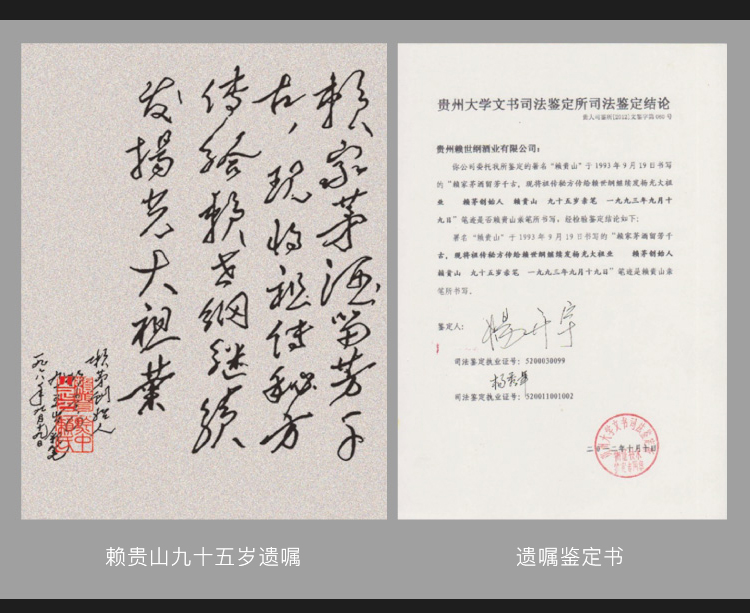 赖家茅酒留芳千
古，现将祖传秘方
传给赖世纲继续
发扬光大祖业
赖茅创始人
贵州大学文书司法鉴定所司法鉴定结论
贵州赖世纲酒业有限公司：
你公司委托我所鉴定的署名“赖贵山”于1993年9月19日书写
的“赖家茅酒留芳千古，现将祖传秘方传给赖世纲继续发杨光大祖
业 赖茅创始人 赖贵山 九十五岁亲笔 一九九三年九月十
九日”笔迹是否赖贵山亲笔所书写。经检验鉴定结论如下：
署名“赖贵山”于1993年9月19日书写的“赖家茅酒留芳千
古，现将祖传秘方传给赖世纲继续发杨光大祖业 赖茅创始人
赖贵山 九十五岁亲笔 一九九三年九月十九日”笔迹是赖贵山亲
笔所书写。
鉴定人：
司法鉴定执业证号：5200030099
司法鉴定执业证号：520011001002
二〇一二年十月十日
赖贵山九十五岁遗嘱
遗嘱鉴定书